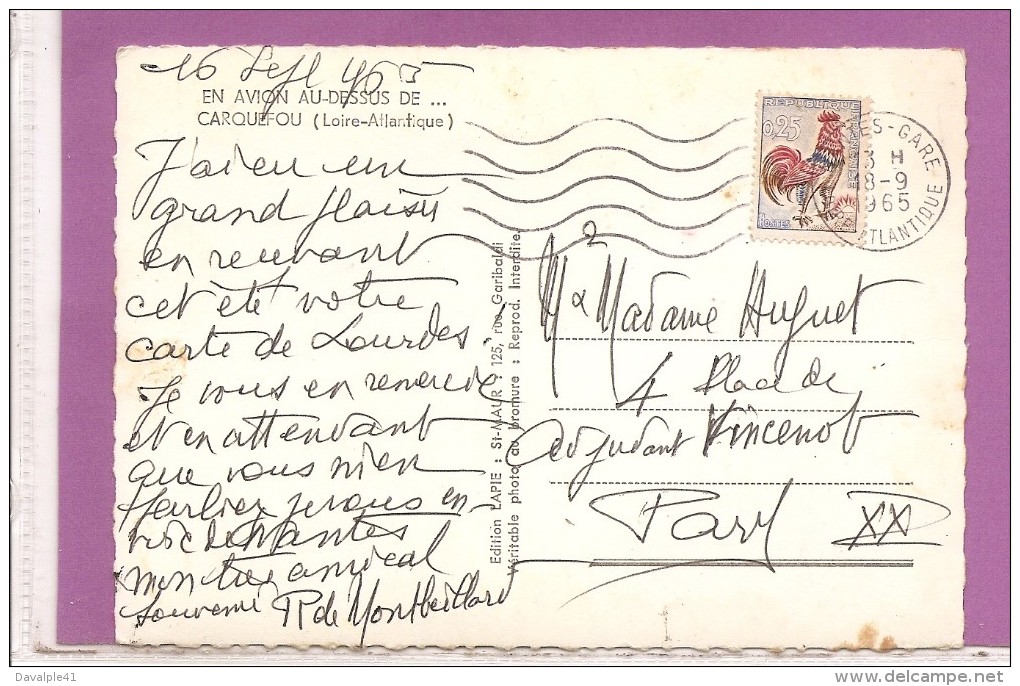 16 Sept 1965
EN AVION AU-DESSUS DE ...
CARQUEFOU (Loire-Atlantique)
J'ai eu un
grand plaisir
en recevant
cet été votre
carte de Lourdes.
Je vous en remercie
et en attendant
que vous m'en
parliez je vous en
de Nantes
mon très amical
souvenir R de Montbeillard
Edition LAPIE : St-MAUR : 125, rue Garibaldi
Véritable photo au bromure : Reprod. Interdite
REPUBLIQUE
FRANÇAISE
0,25
POSTES
ES-GARE
3 H
18-9
1965
ATLANTIQUE
M & Madame Huguet
4 Place de
adjudant Vincenot
Paris XX
Davalple41
© delcampe.net